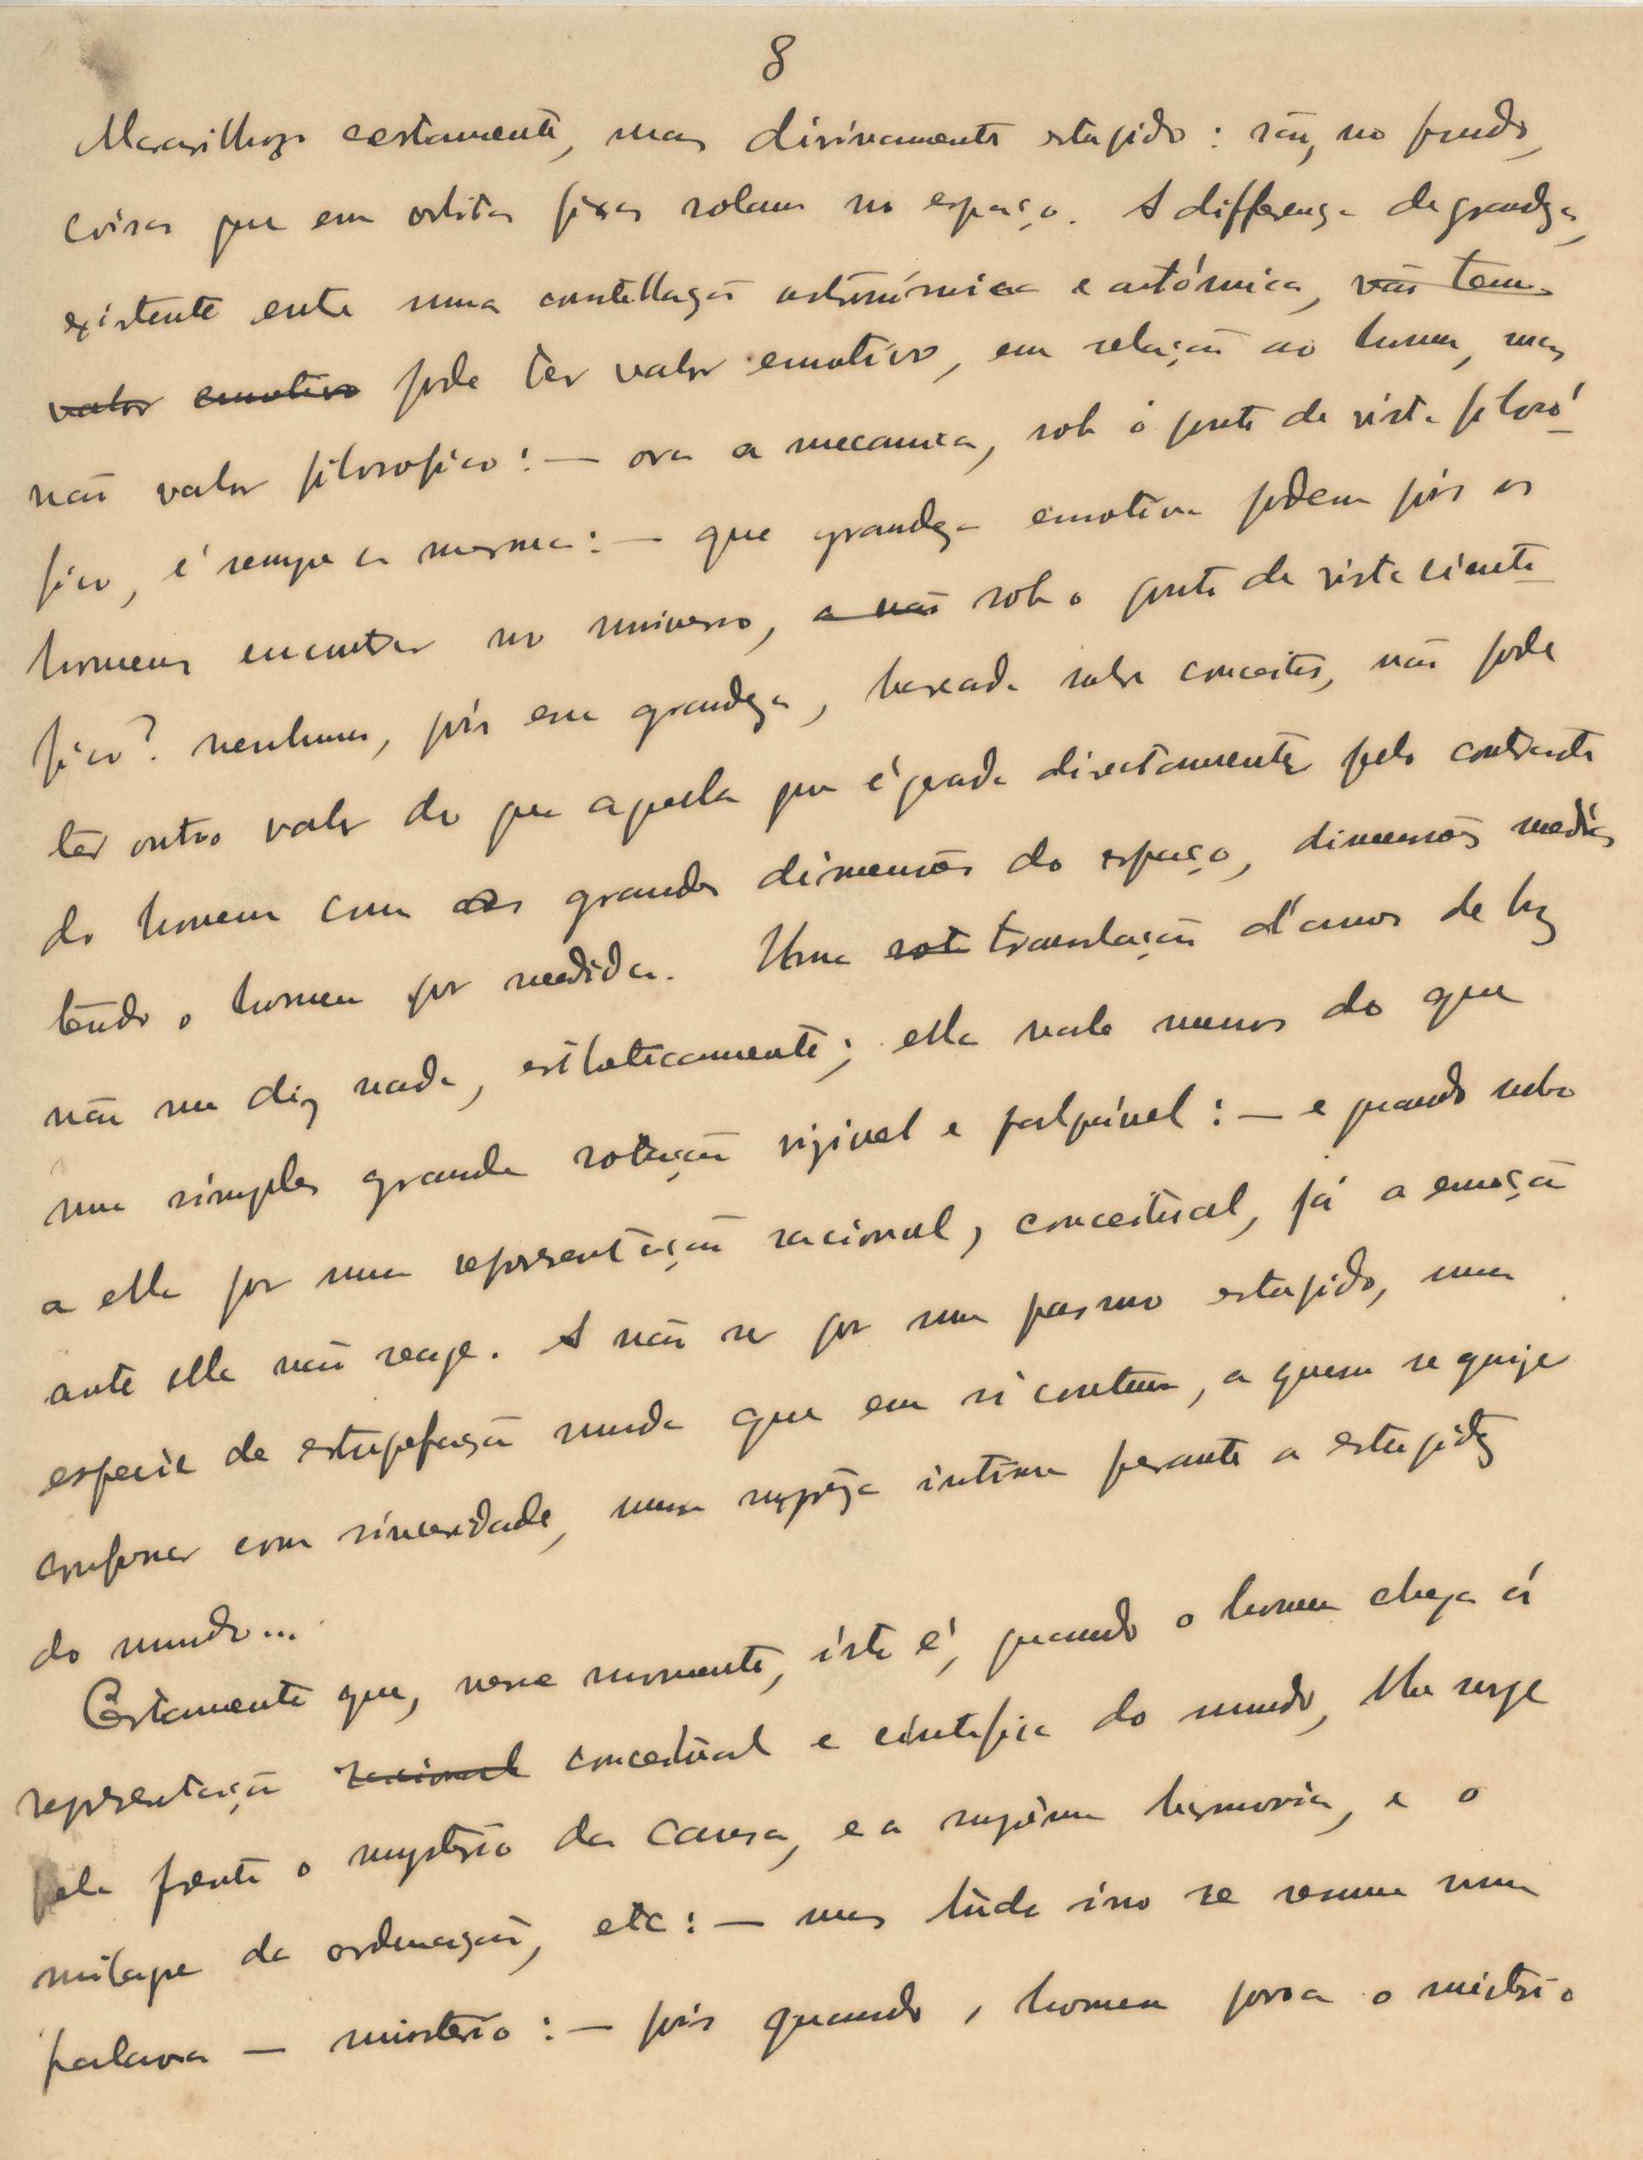 8
Maravilhozo certamente, mas divinamente estupido: são, no fundo,
coisas que em orbitas fixas rolam no espaço. A differença de grandeza,
existente entre uma constellação astronómica e atómica, não tem
valor emotivo pode ter valor emotivo, em relação ao homem, mas
não valor filosofico: — ora a mecanica, sob o ponto de vista filosó-
fico, é sempre a mesma: — que grandeza emotiva podem pois os
homens encontrar no universo, a não sob o ponto de vista cienti-
fico? nenhuma, pois essa grandeza, baseada sobre conceitos, não pode
ter outro valor do que aquella que é gerada directamente pelo contraste
do homem com as grandes dimensões do espaço, dimensões medidas
tendo o homem por medida. Uma rot translação d'anos de luz
não me diz nada, esthéticamente; ella vale menos do que
uma simples grande rotação vizivel e palpável: — e quando subo
a ella por uma representação racional, conceitual, já a emoção
ante ella não reage. A não ser por um pasmo estupido, uma
especie de estupefação muda que em si contem, a quem se quizer
confessar com sinceridade, uma surpreza intima perante a estupidez
do mundo...
Certamente que, nesse momento, isto é, quando o homem chega á
representação racional conceitual e cientifica do mundo, lhe surge
pela frente o mysterio da causa, e a suprema harmonia, e o
milagre da ordenação, etc: — mas tudo isso se resume numa
palavra — misterio: — pois quando o homem prova o mistério